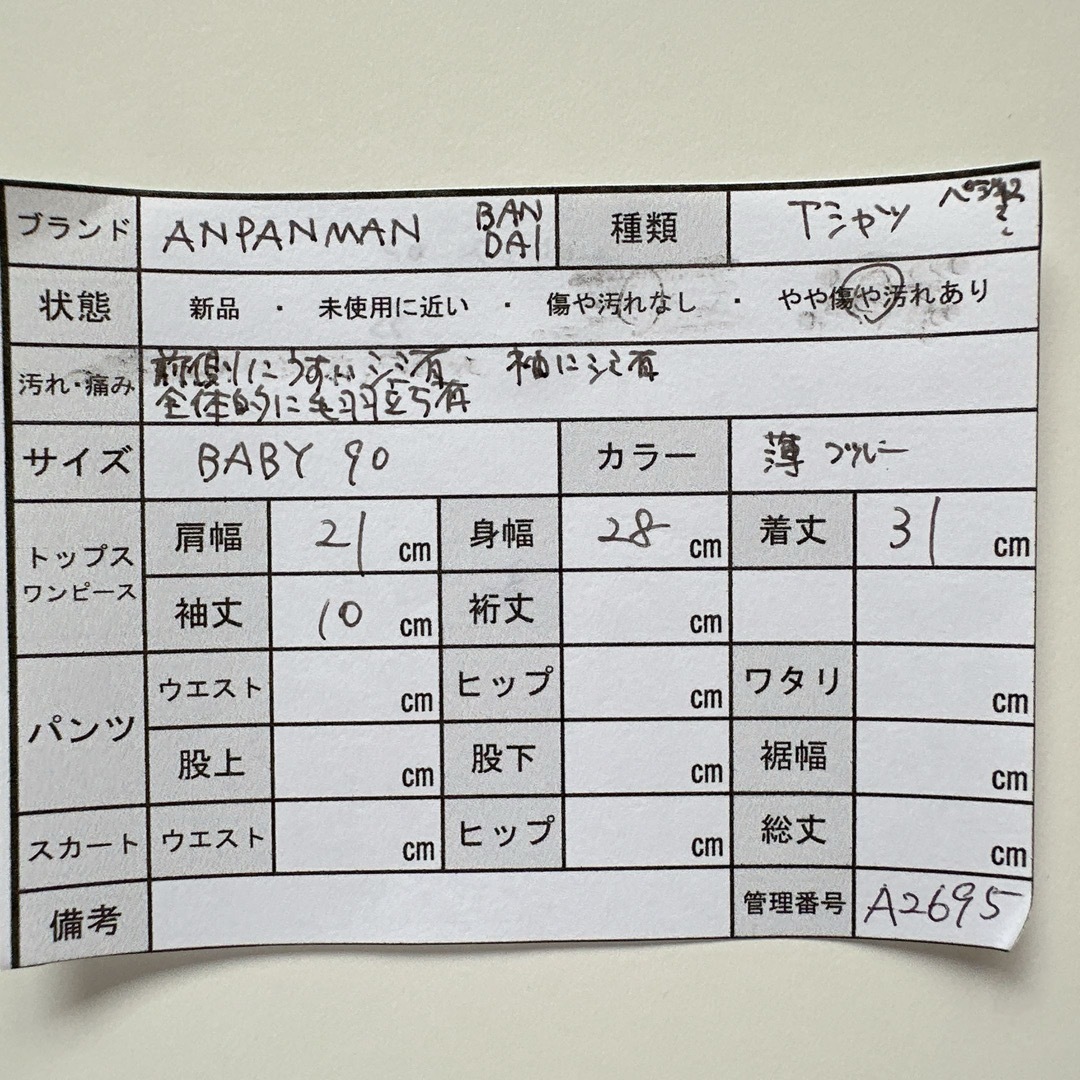 ブランド ANPANMAN BAN DAI 種類 Tシャツ
状態 新品 ・ 未使用に近い ・ 傷や汚れなし ・ やや傷や汚れあり
汚れ・痛み 前側にうすいシミ有 袖にシミ有
全体的に毛羽立ち有
サイズ BABY 90 カラー 薄ブルー
トップス ワンピース 肩幅 21 cm 身幅 28 cm 着丈 31 cm
袖丈 10 cm 裄丈 cm
パンツ ウエスト cm ヒップ cm ワタリ cm
股上 cm 股下 cm 裾幅 cm
スカート ウエスト cm ヒップ cm 総丈 cm
備考 管理番号 A2695